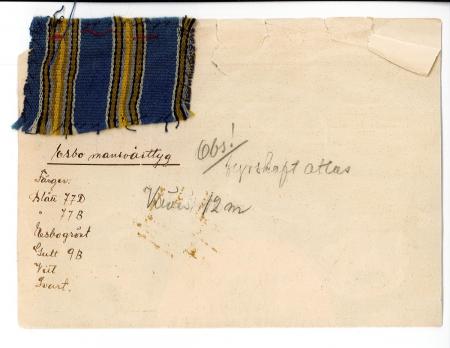 Esbo mansvästtyg
Färger.
blått 77 D
" 77 B
Esbogrönt
Gult 9 B
Vitt
Svart.
Obs!
fyrskaft atlas
12 m